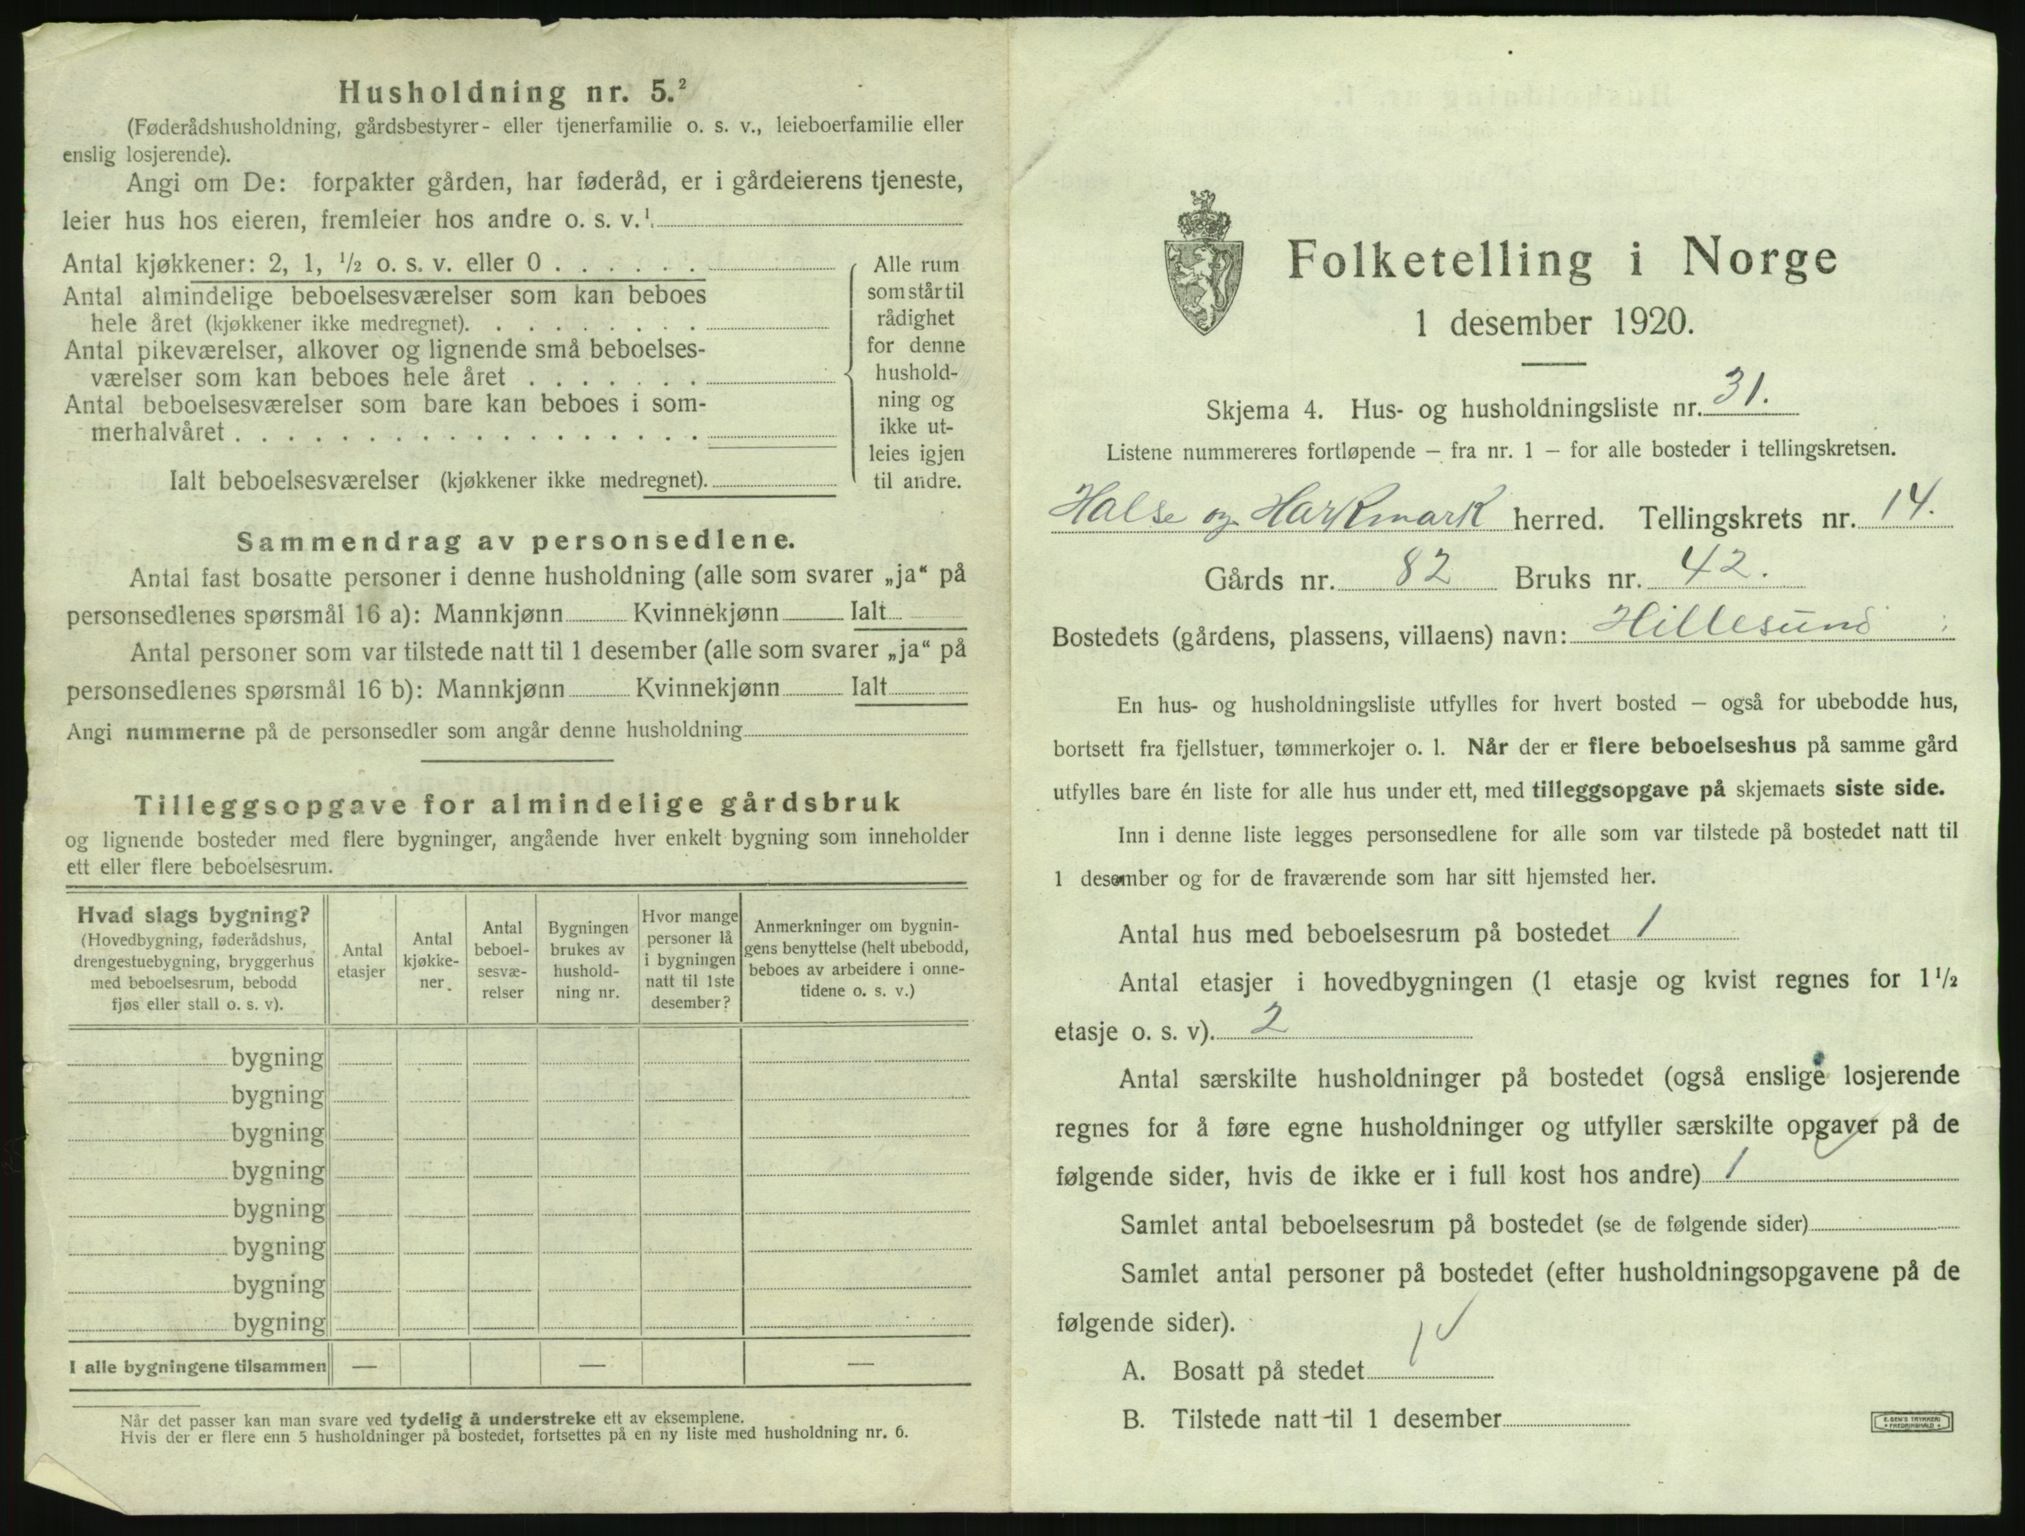 Husholdning nr. 5.²
(Føderådshusholdning, gårdsbestyrer- eller tjenerfamilie o. s. v., leieboerfamilie eller
enslig losjerende).
Angi om De: forpakter gården, har føderåd, er i gårdeierens tjeneste,
leier hus hos eieren, fremleier hos andre o. s. v.¹
Antal kjøkkener: 2, 1, ½ o. s. v. eller 0 . . . . . .
Antal almindelige beboelsesværelser som kan beboes
hele året (kjøkkener ikke medregnet). . . . . . . . .
Antal pikeværelser, alkover og lignende små beboelses-
værelser som kan beboes hele året . . . . . . .
Antal beboelsesværelser som bare kan beboes i som-
merhalvåret . . . . . . . . . . . . . . . . . .
Ialt beboelsesværelser (kjøkkener ikke medregnet).
Alle rum
som står til
rådighet
for denne
hushold-
ning og
ikke ut-
leies igjen
til andre.
Sammendrag av personsedlene.
Antal fast bosatte personer i denne husholdning (alle som svarer „ja“ på
personsedlenes spørsmål 16 a): Mannkjønn Kvinnekjønn Ialt
Antal personer som var tilstede natt til 1 desember (alle som svarer „ja“ på
personsedlenes spørsmål 16 b): Mannkjønn Kvinnekjønn Ialt
Angi nummerne på de personsedler som angår denne husholdning
Tilleggsopgave for almindelige gårdsbruk
og lignende bosteder med flere bygninger, angående hver enkelt bygning som inneholder
ett eller flere beboelsesrum.
Hvad slags bygning?
(Hovedbygning, føderådshus,
drengestuebygning, bryggerhus
med beboelsesrum, bebodd
fjøs eller stall o. s. v).
Antal
etasjer
Antal
kjøkke-
ner.
Antal
beboel-
sesvæ-
relser
Bygningen
brukes av
hushold-
ning nr.
Hvor mange
personer lå
i bygningen
natt til 1ste
desember?
Anmerkninger om bygnin-
gens benyttelse (helt ubebodd,
beboes av arbeidere i onne-
tidene o. s. v.)
bygning
bygning
bygning
bygning
bygning
bygning
bygning
bygning
I alle bygningene tilsammen — — —
Når det passer kan man svare ved tydelig å understreke ett av eksemplene.
Hvis der er flere enn 5 husholdninger på bostedet, fortsettes på en ny liste med husholdning nr. 6.
Folketelling i Norge
1 desember 1920.
Skjema 4. Hus- og husholdningsliste nr. 31.
Listene nummereres fortløpende – fra nr. 1 – for alle bosteder i tellingskretsen.
Halse og Harkmark herred. Tellingskrets nr. 14.
Gårds nr. 82 Bruks nr. 42.
Bostedets (gårdens, plassens, villaens) navn: Hillesund
En hus- og husholdningsliste utfylles for hvert bosted – også for ubebodde hus,
bortsett fra fjellstuer, tømmerkojer o. l. Når der er flere beboelseshus på samme gård
utfylles bare én liste for alle hus under ett, med tilleggsopgave på skjemaets siste side.
Inn i denne liste legges personsedlene for alle som var tilstede på bostedet natt til
1 desember og for de fraværende som har sitt hjemsted her.
Antal hus med beboelsesrum på bostedet 1
Antal etasjer i hovedbygningen (1 etasje og kvist regnes for 1 ½
etasje o. s. v). 2
Antal særskilte husholdninger på bostedet (også enslige losjerende
regnes for å føre egne husholdninger og utfyller særskilte opgaver på de
følgende sider, hvis de ikke er i full kost hos andre) 1
Samlet antal beboelsesrum på bostedet (se de følgende sider)
Samlet antal personer på bostedet (efter husholdningsopgavene på de
følgende sider).
A. Bosatt på stedet 1
B. Tilstede natt til 1 desember